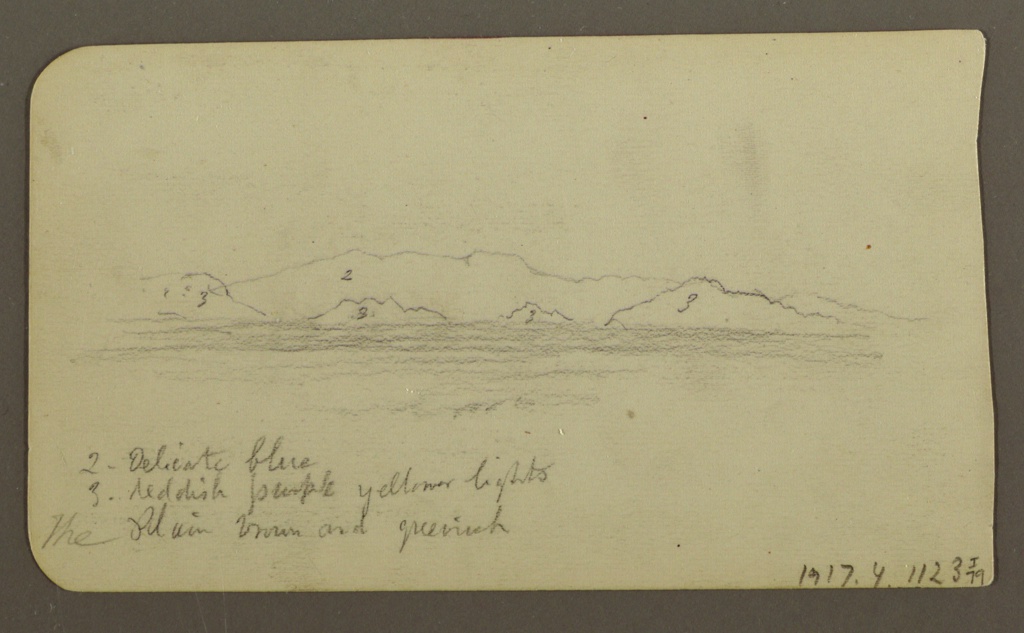 2
3
3
3
3
2 - Delicate blue
3. reddish purple yellower lights
The Plain brown and greenish
1917.4.1123 I/79